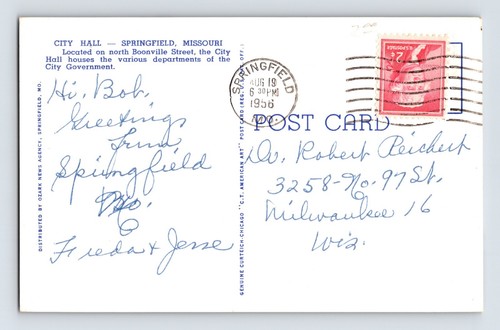 CITY HALL — SPRINGFIELD, MISSOURI
Located on north Boonville Street, the City
Hall houses the various departments of the
City Government.
Hi. Bob.
Greetings
From
Springfield
Mo.
Freda & Jesse
DISTRIBUTED BY OZARK NEWS AGENCY, SPRINGFIELD, MO.
GENUINE CURTEICH-CHICAGO "C.T. AMERICAN ART" POST CARD (REG. U.S. PAT. OFF.)
SPRINGFIELD
AUG 19
6 30 PM
1956
MO.
2¢
POST CARD
Dr. Robert Reichert
3258-No. 97 St.
Milwaukee 16
Wis.